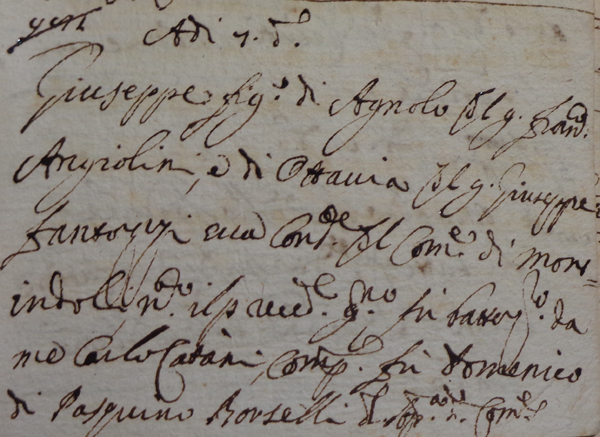 Adi 7. d.º
Giuseppe fig.º di Agnolo del q. Fran.º
Angiolini, e di Ottavia del q. Giuseppe
Fantozzi sua Con.te del Com.e di Mon=
indoli n.to il preced.te g.no fu battez.to da
me Carlo Catani, Comp.e fu Domenico
di Pasquino Borselli d. Com.e